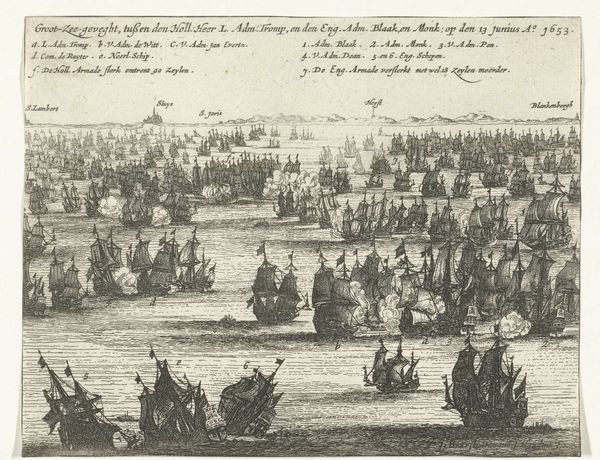 Groot-Zee-geveght, tußen den Holl. Heer L. Adm. Tromp, en den Eng. Adm. Blaak, en Monk; op den 13 junius Aº 1653.
a. L. Adm. Tromp. b. V. Adm. de Witt. C. V. Adm. jan Evertn. 1. Adm. Blaak. 2. Adm. Monk. 3. V. Adm. Pen.
d. Com. de Ruyter. e. Neerl. Schip. 4. V. Adm. Dean. 5. en 6. Eng. Schepen.
f. De Holl. Armade sterk omtrent 90 Zeylen. 7. De Eng. Armade versterkt met wel 18 Zeylen meerder.
S. Lambert Sluys S. joris Heyst Blankenbergh